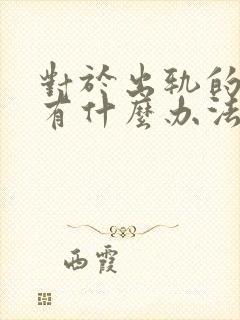 對於出轨的
有什麼办法
西霞